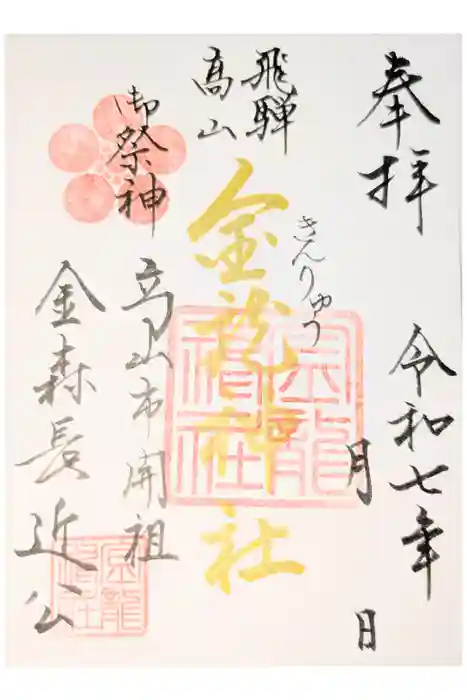 奉拝
令和七年
月
日
飛騨
高山
きんりゅう
金龍神社
御祭神
高山市開祖
金森長近公
金龍
神社
金龍
神社